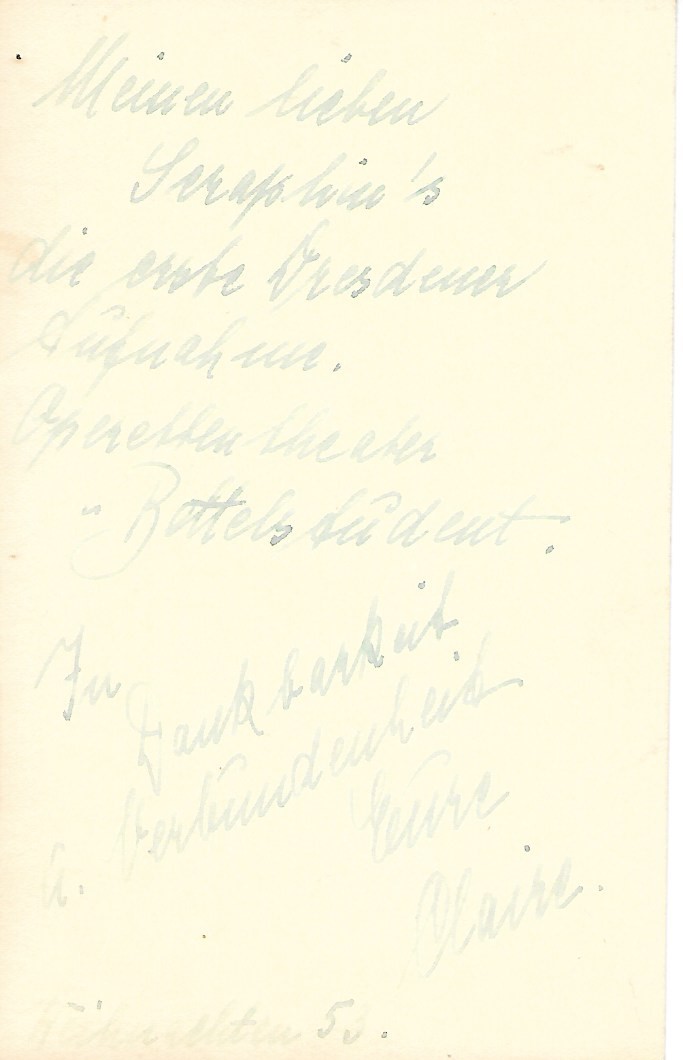 Meinen lieben
Seraphin's
die erste Dresdener
Aufnahme.
Operettentheater
„Bettelstudent.
In
Dankbarkeit
u. Verbundenheit
Eure
Claire.
Weihnachten 53.